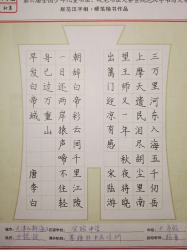 规范汉字组·硬笔楷书作品
三万里河东入海五千仞岳
上摩天遗民泪尽胡尘里南
望王师又一年秋夜将晓
出篱门迎凉有感 宋陆游
朝辞白帝彩云间千里江陵
一日还两岸猿声啼不住轻
舟已过万重山
早发白帝城 唐李白